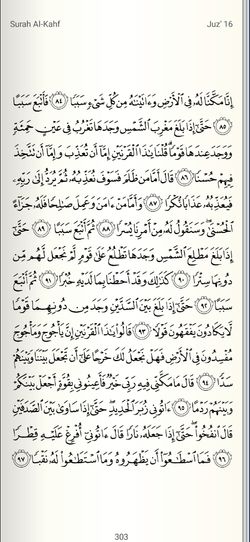 Surah Al-Kahf
Juz' 16
إِنَّا مَكَّنَّا لَهُۥ فِى ٱلْأَرْضِ وَءَاتَيْنَٰهُ مِن كُلِّ شَىْءٍ سَبَبًا ٨٤ فَأَتْبَعَ سَبَبًا
٨٥ حَتَّىٰٓ إِذَا بَلَغَ مَغْرِبَ ٱلشَّمْسِ وَجَدَهَا تَغْرُبُ فِى عَيْنٍ حَمِئَةٍ
وَوَجَدَ عِندَهَا قَوْمًا ۗ قُلْنَا يَٰذَا ٱلْقَرْنَيْنِ إِمَّآ أَن تُعَذِّبَ وَإِمَّآ أَن تَتَّخِذَ
فِيهِمْ حُسْنًا ٨٦ قَالَ أَمَّا مَن ظَلَمَ فَسَوْفَ نُعَذِّبُهُۥ ثُمَّ يُرَدُّ إِلَىٰ رَبِّهِۦ
فَيُعَذِّبُهُۥ عَذَابًا نُّكْرًا ٨٧ وَأَمَّا مَنْ ءَامَنَ وَعَمِلَ صَٰلِحًا فَلَهُۥ جَزَآءً
ٱلْحُسْنَىٰ ۖ وَسَنَقُولُ لَهُۥ مِنْ أَمْرِنَا يُسْرًا ٨٨ ثُمَّ أَتْبَعَ سَبَبًا ٨٩ حَتَّىٰٓ
إِذَا بَلَغَ مَطْلِعَ ٱلشَّمْسِ وَجَدَهَا تَطْلُعُ عَلَىٰ قَوْمٍ لَّمْ نَجْعَل لَّهُم مِّن
دُونِهَا سِتْرًا ٩٠ كَذَٰلِكَ وَقَدْ أَحَطْنَا بِمَا لَدَيْهِ خُبْرًا ٩١ ثُمَّ أَتْبَعَ
سَبَبًا ٩٢ حَتَّىٰٓ إِذَا بَلَغَ بَيْنَ ٱلسَّدَّيْنِ وَجَدَ مِن دُونِهِمَا قَوْمًا
لَّا يَكَادُونَ يَفْقَهُونَ قَوْلًا ٩٣ قَالُوا۟ يَٰذَا ٱلْقَرْنَيْنِ إِنَّ يَأْجُوجَ وَمَأْجُوجَ
مُفْسِدُونَ فِى ٱلْأَرْضِ فَهَلْ نَجْعَلُ لَكَ خَرْجًا عَلَىٰٓ أَن تَجْعَلَ بَيْنَنَا وَبَيْنَهُمْ
سَدًّا ٩٤ قَالَ مَا مَكَّنِّى فِيهِ رَبِّى خَيْرٌ فَأَعِينُونِى بِقُوَّةٍ أَجْعَلْ بَيْنَكُمْ
وَبَيْنَهُمْ رَدْمًا ٩٥ ءَاتُونِى زُبَرَ ٱلْحَدِيدِ ۖ حَتَّىٰٓ إِذَا سَاوَىٰ بَيْنَ ٱلصَّدَفَيْنِ
قَالَ ٱنفُخُوا۟ ۖ حَتَّىٰٓ إِذَا جَعَلَهُۥ نَارًا قَالَ ءَاتُونِىٓ أُفْرِغْ عَلَيْهِ قِطْرًا
٩٦ فَمَا ٱسْطَٰعُوٓا۟ أَن يَظْهَرُوهُ وَمَا ٱسْتَطَٰعُوا۟ لَهُۥ نَقْبًا ٩٧
303